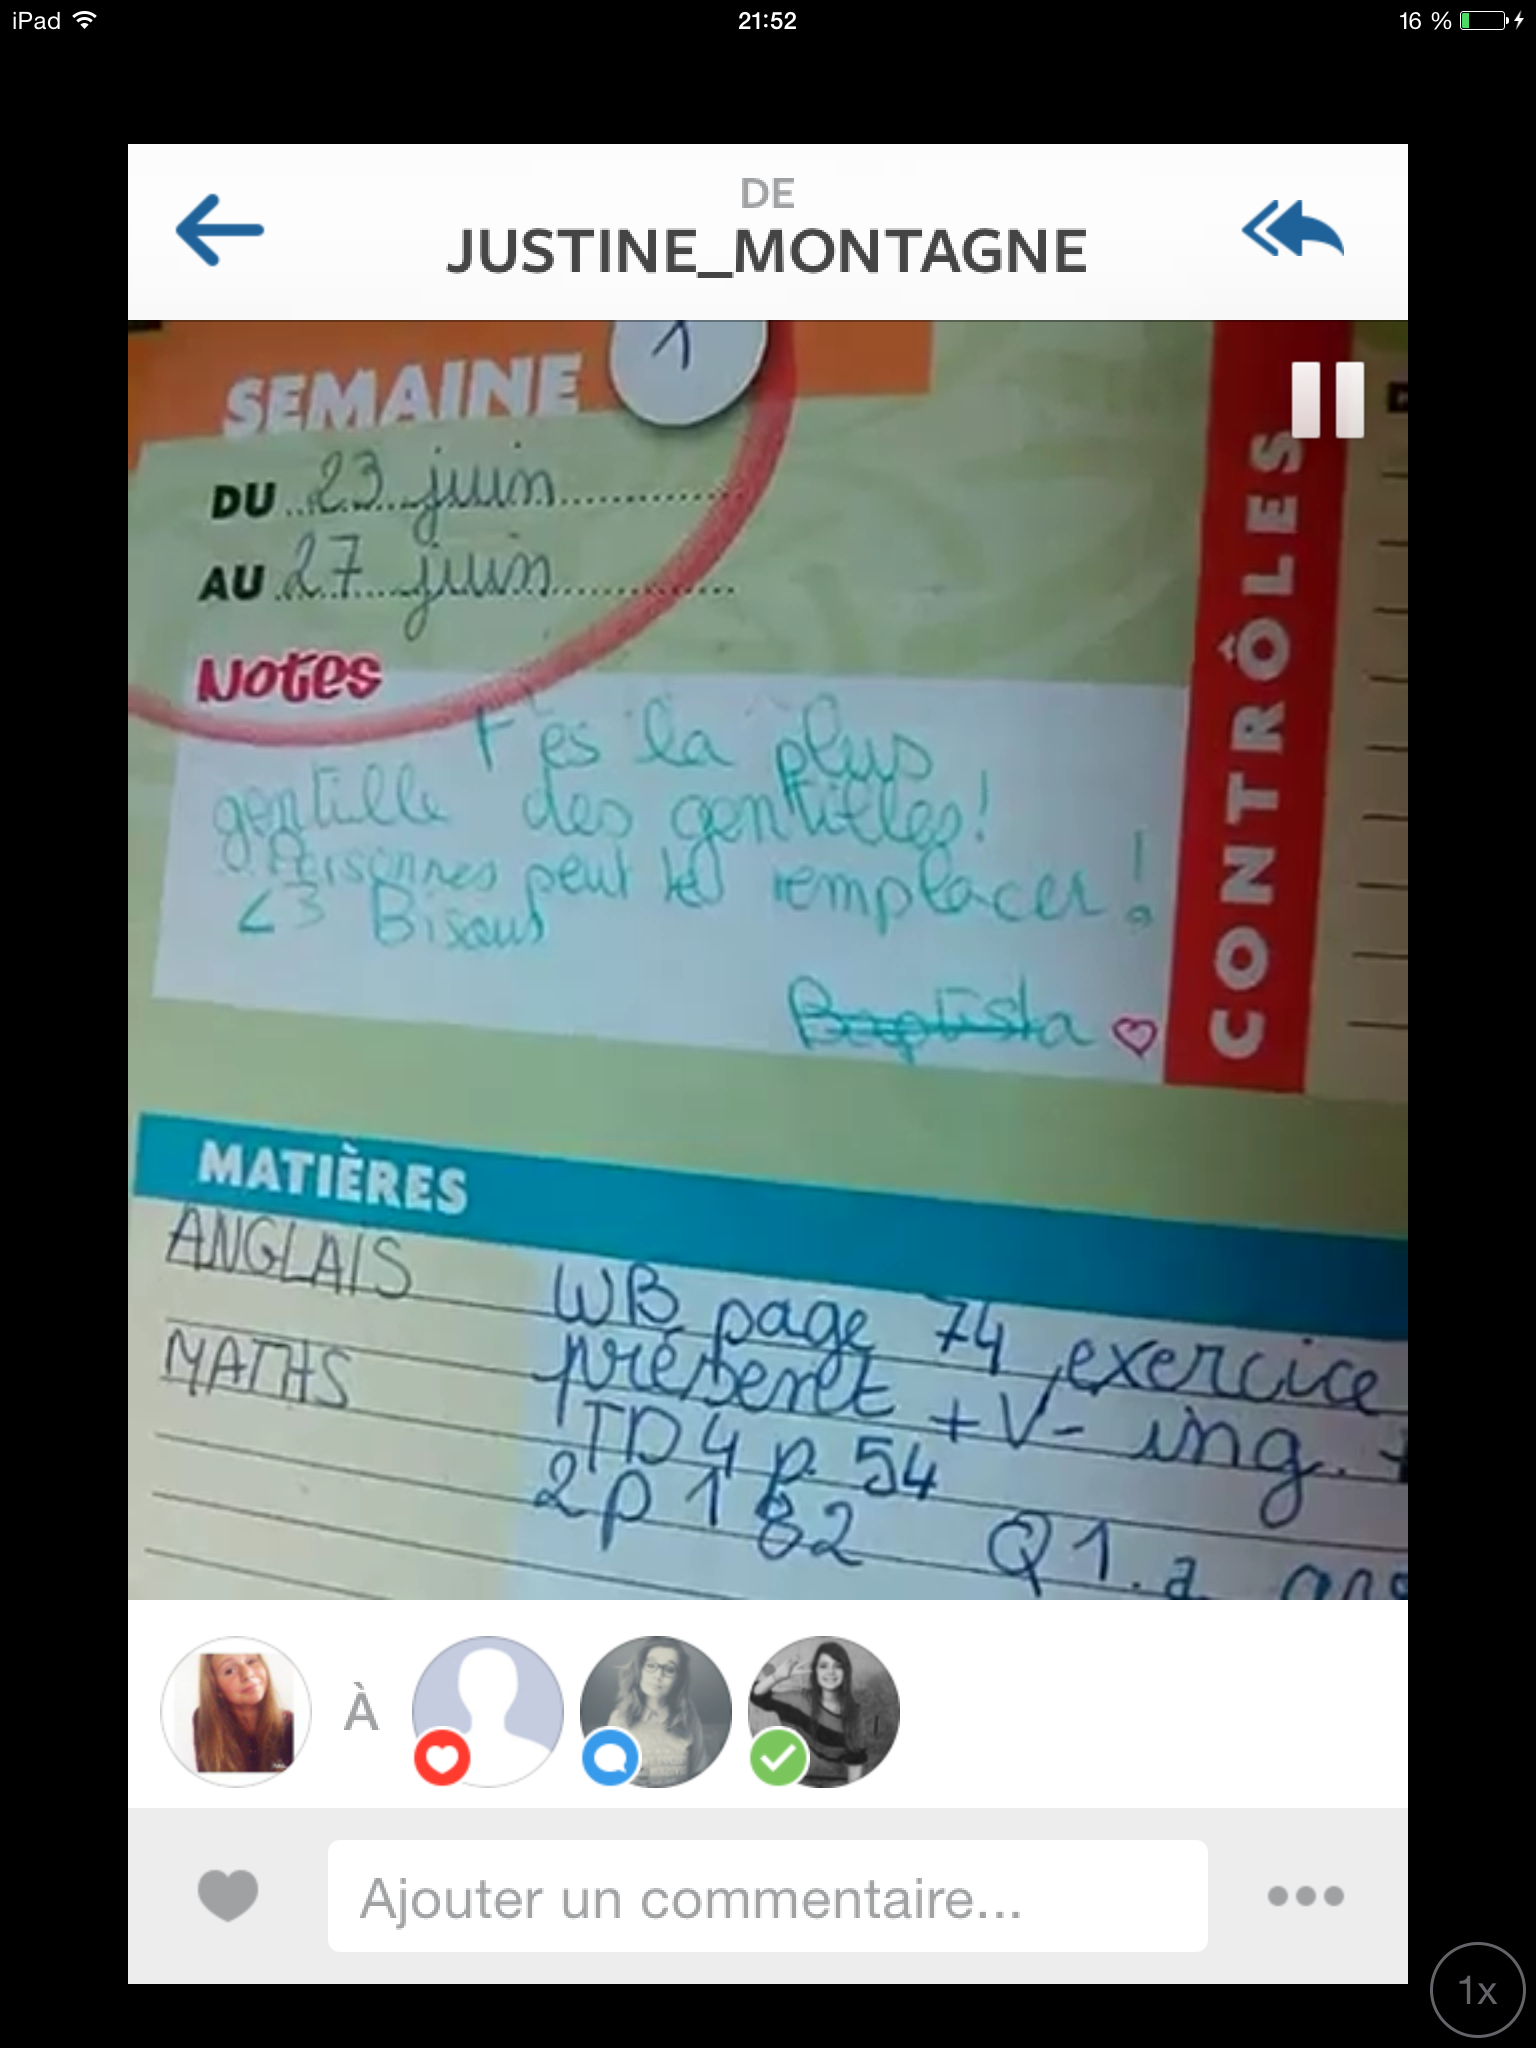 iPad 21:52 16 %
DE
JUSTINE_MONTAGNE
SEMAINE 1
DU 23 juin
AU 27 juin
Notes
T'es la plus
gentille des gentilles!
Personnes peut te remplacer !
<3 Bisous
Baptista ♡
CONTRÔLES
MATIÈRES
ANGLAIS WB page 74 exercice
présent + V- ing. +
MATHS TD 4 p. 54
2 p 182 Q1. a
À
Ajouter un commentaire...
1x